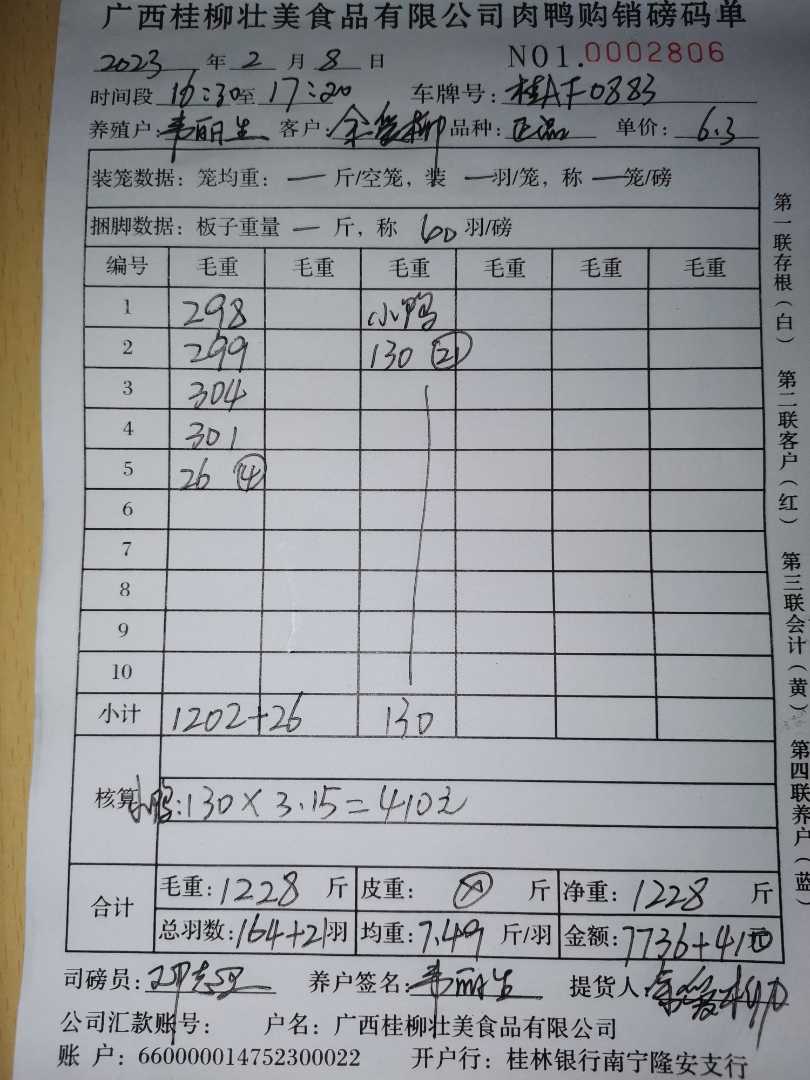 广西桂柳壮美食品有限公司肉鸭购销磅码单
2023 年 2 月 8 日 NO1.0002806
时间段 16:30至 17:20 车牌号: 桂AF0883
养殖户: 韦丽生 客户: 余管柳 品种: 正品 单价: 6.3
装笼数据: 笼均重: — 斤/空笼, 装 —羽/笼, 称 —笼/磅
捆脚数据: 板子重量 — 斤, 称 60 羽/磅
编号 毛重 毛重 毛重 毛重 毛重 毛重
1 298 小鸭
2 299 130 ㉑
3 304
4 301
5 26 ④
6
7
8
9
10
小计 1202+26 130
核算 小鸭:130×3.15=410元
合计 毛重: 1228 斤 皮重: 斤 净重: 1228 斤
总羽数: 164+21羽 均重: 7.49 斤/羽 金额: 7736+410元
司磅员: 养户签名: 韦丽生 提货人: 余管柳
公司汇款账号: 户名: 广西桂柳壮美食品有限公司
账 户: 660000014752300022 开户行: 桂林银行南宁隆安支行
第一联存根(白) 第二联客户(红) 第三联会计(黄) 第四联养户(蓝)